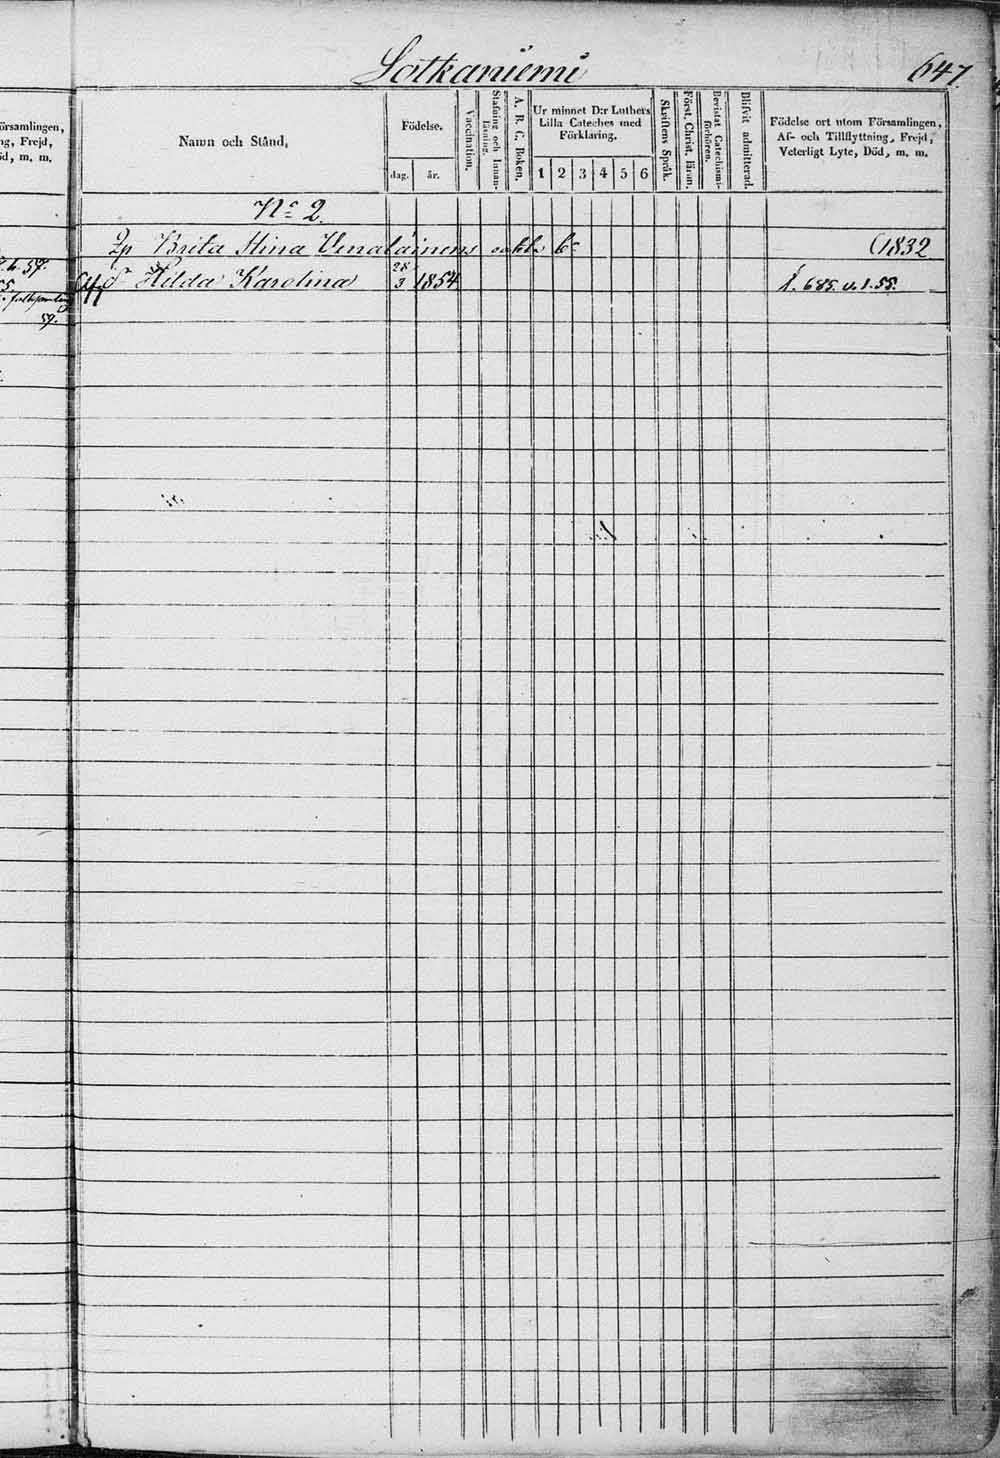 Sotkaniemi
647.
örsamlingen,
ng, Frejd,
öd, m. m.
Namn och Stånd,
Födelse.
dag.
år.
Vaccination.
Stafning och Innan-
läsning.
A. B. C. Boken.
Ur minnet D:r Luthers
Lilla Cateches med
Förklaring.
1 2 3 4 5 6
Skriftens Språk.
Först. Christ. Läran.
Bevistat Catechismi-
förhören.
Blifvit admitterad.
Födelse ort utom Församlingen,
Af- och Tillflyttning, Frejd,
Veterligt Lyte, Död, m. m.
No 2.
Brita Stina Venaläinens (1832
57.
Hilda Karolina 28/3 1854 f. 685. v. 1. 55.
59.